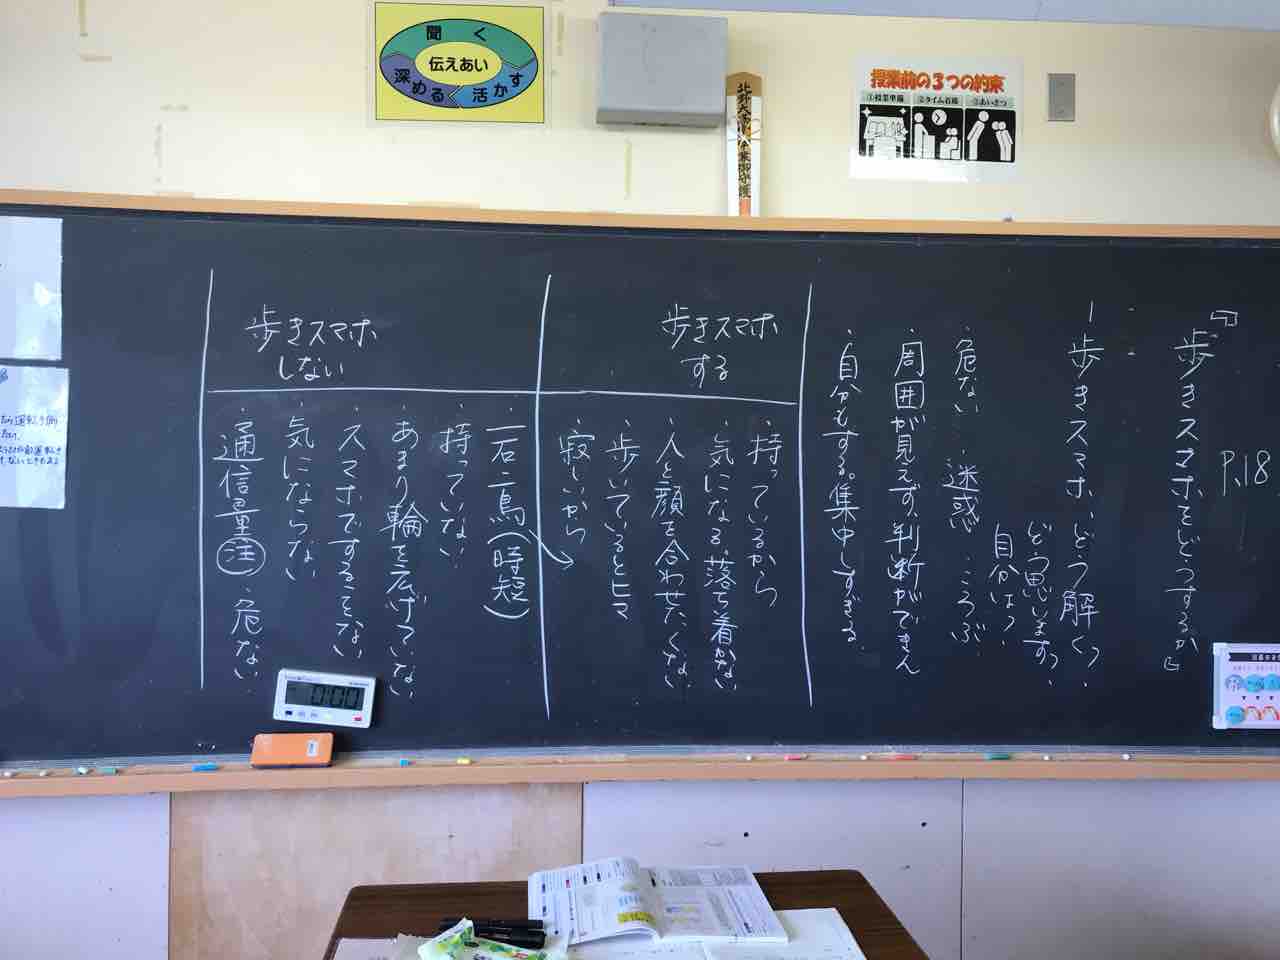 聞く
伝えあい
深める
活かす
授業前の3つの約束
①授業準備
②タイム着席
③あいさつ
P.18
「歩きスマホをどうするか」
歩きスマホ、どう解く?
どう思います?
自分は?
・危ない…迷惑…ころぶ
・周囲が見えず、判断ができん
・自分もする。集中しすぎる
歩きスマホ
する
・持っているから
・気になる。落ち着かない
・人と顔を合わせたくない
・歩いているとヒマ
・寂しいから
歩きスマホ
しない
・一石二鳥(時短)
・持っていない
・あまり輪を広げていない
・スマホですることない
・気にならない
・通信量(注)、危ない